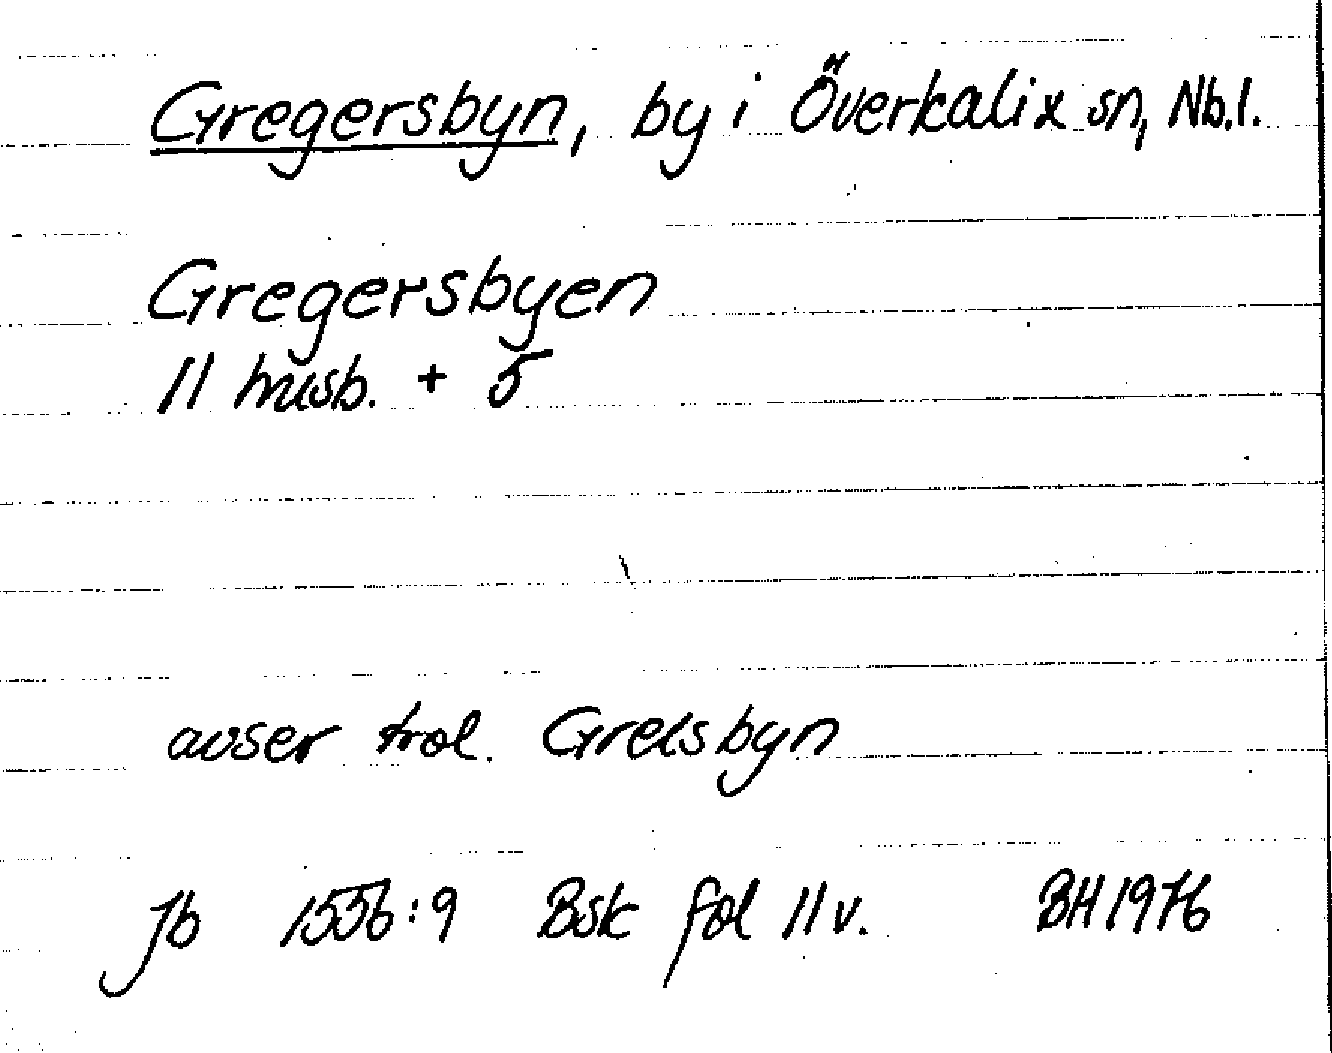 Gregersbyn, by i Överkalix sn, Nb.l.
Gregersbyen
11 husb. + 5
avser trol. Grelsbyn
Jb 1556:9 Bsk fol 11 v. BH 1976